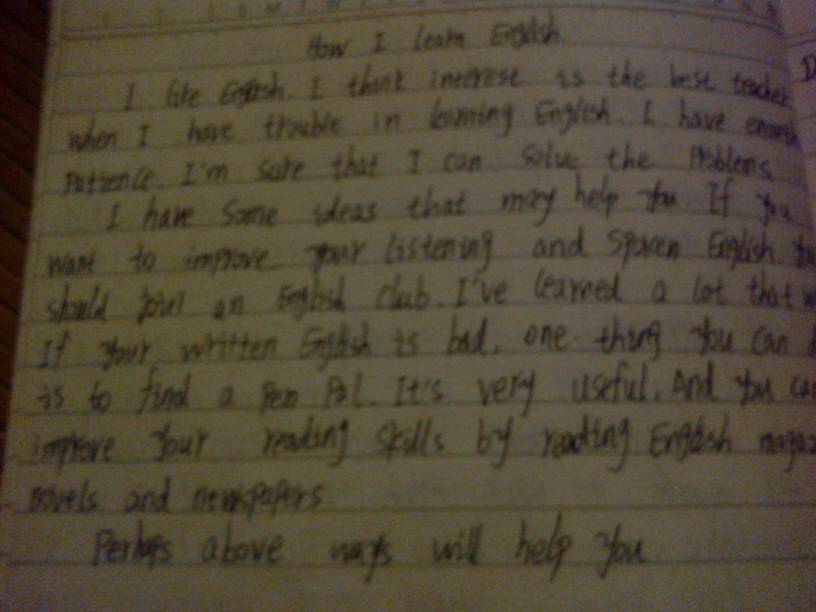 How I learn English.
I like English. I think interest is the best teacher
when I have trouble in learning English. I have enough
Patience. I'm sure that I can solve the Problems
I have some ideas that may help you If you
want to improve your listening and spoken English. You
should join an English club. I've learned a lot that
If your written English is bad, one thing you can
is to find a Pen Pal. It's very useful. And you can
improve your reading skills by reading English
novels and newspapers
Perhaps above ways will help you.